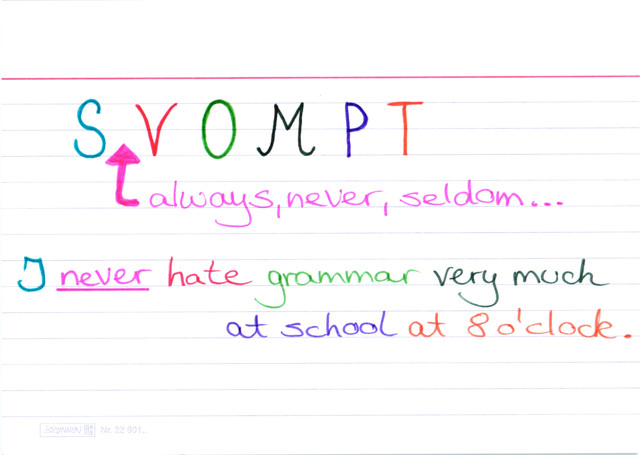 S V O M P T
always, never, seldom...
I never hate grammar very much
at school at 8 o'clock.
Nr. 22 901